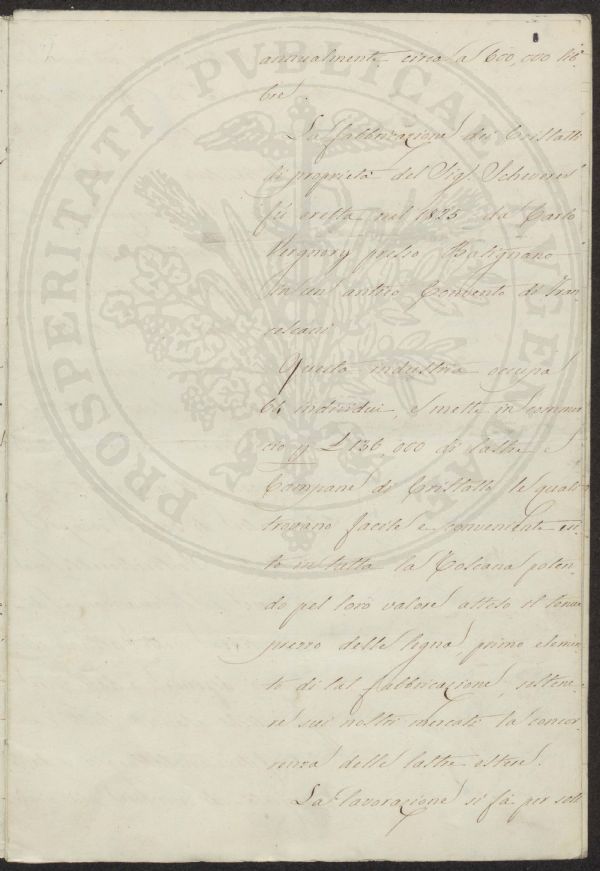 annualmente circa a 600,000 lib-
bre.
La fabbricazione dei Cristalli
di proprietà del Sig.r Scheveres
fù eretta nel 1825 da Carlo
presso Pulignano
In un' antico Convento di Fran-
cescani
Questa industria occupa
64 individui, e mette in commer-
cio p £ 136,000 di lastre e
Campane di Cristallo le quali
trovano facile e conveniente esi-
to in tutta la Toscana poten-
do pel loro valore atteso il tenue
prezzo delle legna, primo elemen-
to di tal fabbricazione, sostene-
re sui nostri mercati la concor-
renza delle lastre estere.
La lavorazione si fà per soli
PROSPERITATI PVBLICAE AVGENDAE